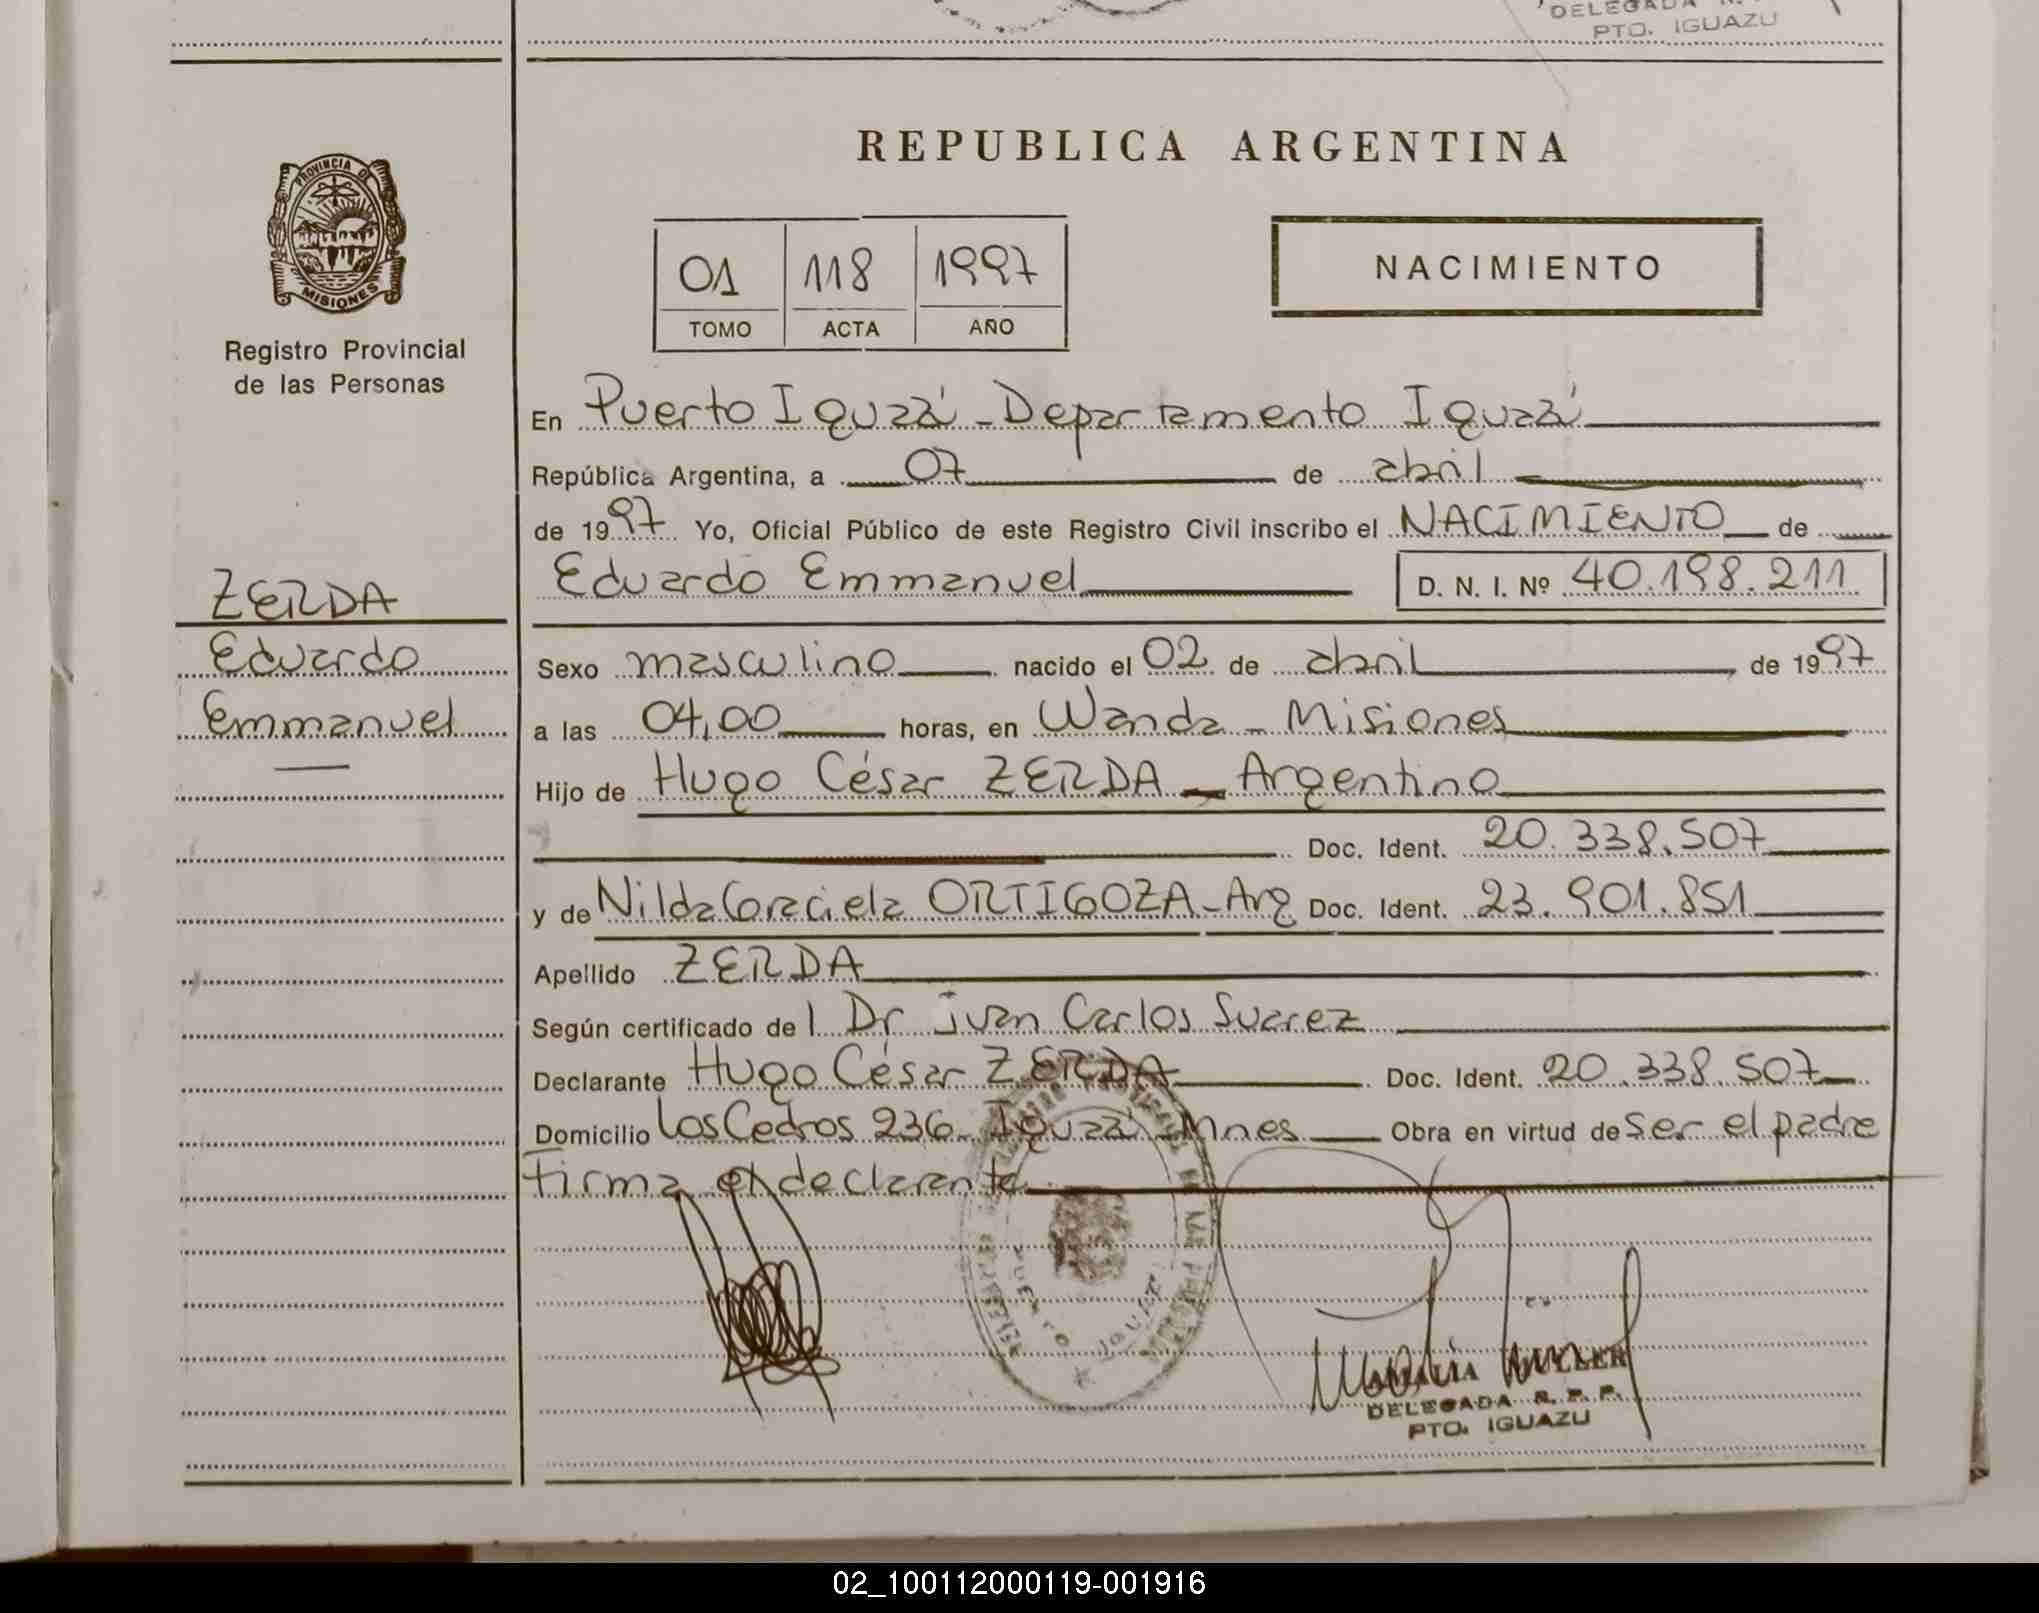 DELEGADA R.
PTO. IGUAZU
REPUBLICA ARGENTINA
PROVINCIA DE
MISIONES
Registro Provincial
de las Personas
01 118 1997
TOMO ACTA AÑO
NACIMIENTO
En Puerto Iguazú - Departamento Iguazú
República Argentina, a 07 de abril
de 1997 Yo, Oficial Público de este Registro Civil inscribo el NACIMIENTO de
Eduardo Emmanuel D. N. I. Nº 40.198.211
ZERDA
Eduardo
Emmanuel
Sexo masculino nacido el 02 de abril de 1997
a las 04,00 horas, en Wanda - Misiones
Hijo de Hugo César ZERDA - Argentino
Doc. Ident. 20.338.507
y de Nilda Graciela ORTIGOZA - Arg Doc. Ident. 23.901.851
Apellido ZERDA
Según certificado de l Dr juan Carlos Suarez
Declarante Hugo César ZERDA Doc. Ident. 20.338.507
Domicilio Los Cedros 236 - Iguazú - Mnes Obra en virtud de ser el padre
firma el declarante
PUERTO IGUAZU
DELEGADA R. P. P.
PTO. IGUAZU
02_100112000119-001916